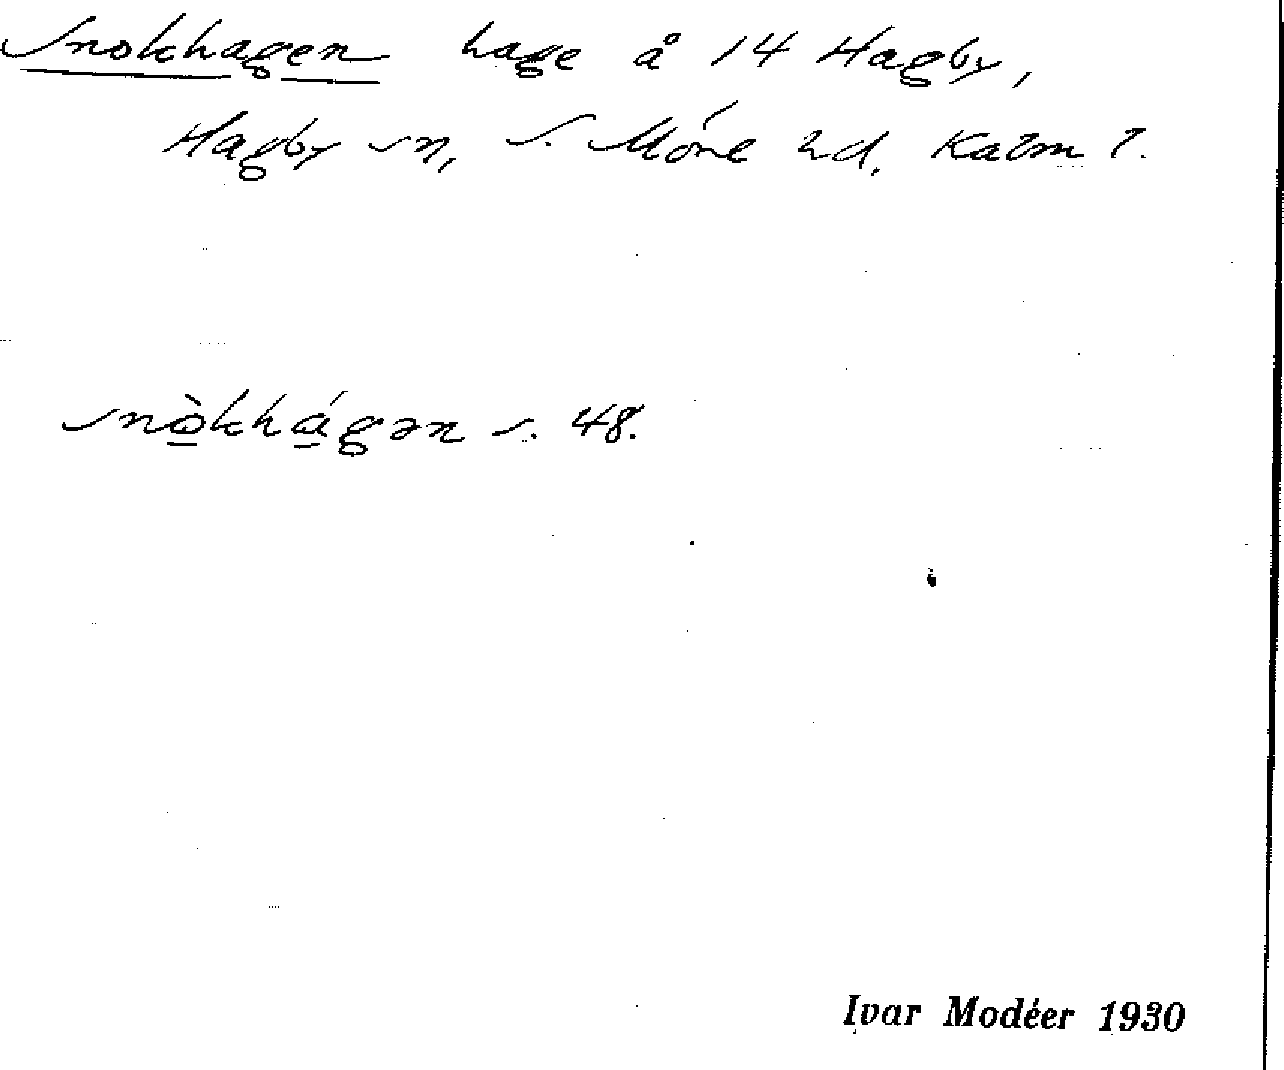 Snokhagen hage å 14 Hagby,
Hagby sn, S. Möre hd. Kalm l.
snòkhágən s. 48.
Ivar Modéer 1930